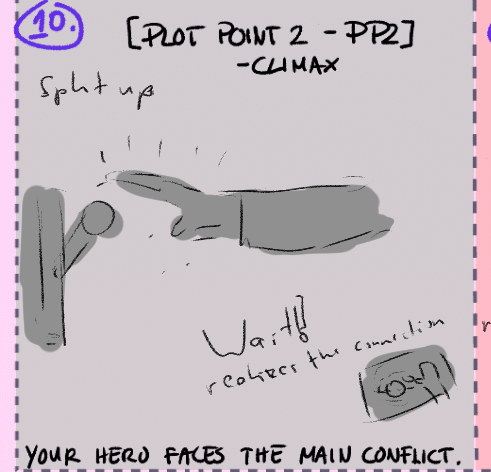 10.
[PLOT POINT 2 - PP2]
-CLIMAX
Split up
Wait!!
realizes the connection
YOUR HERO FACES THE MAIN CONFLICT.